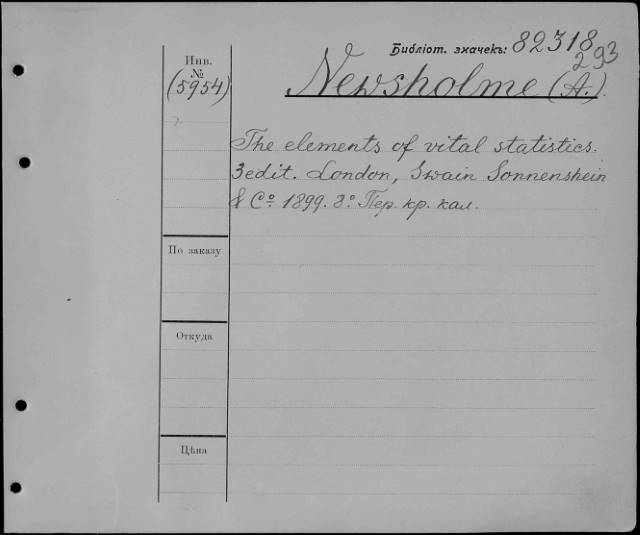 Библіот. значекъ: 82318
293
Инв.
№
(5954)
Newsholme (A.).
The elements of vital statistics.
3edit. London, Swain Sonnenshein
& Cº. 1899. 8º. Пер. кр. кал.
По заказу
Откуда
Цѣна